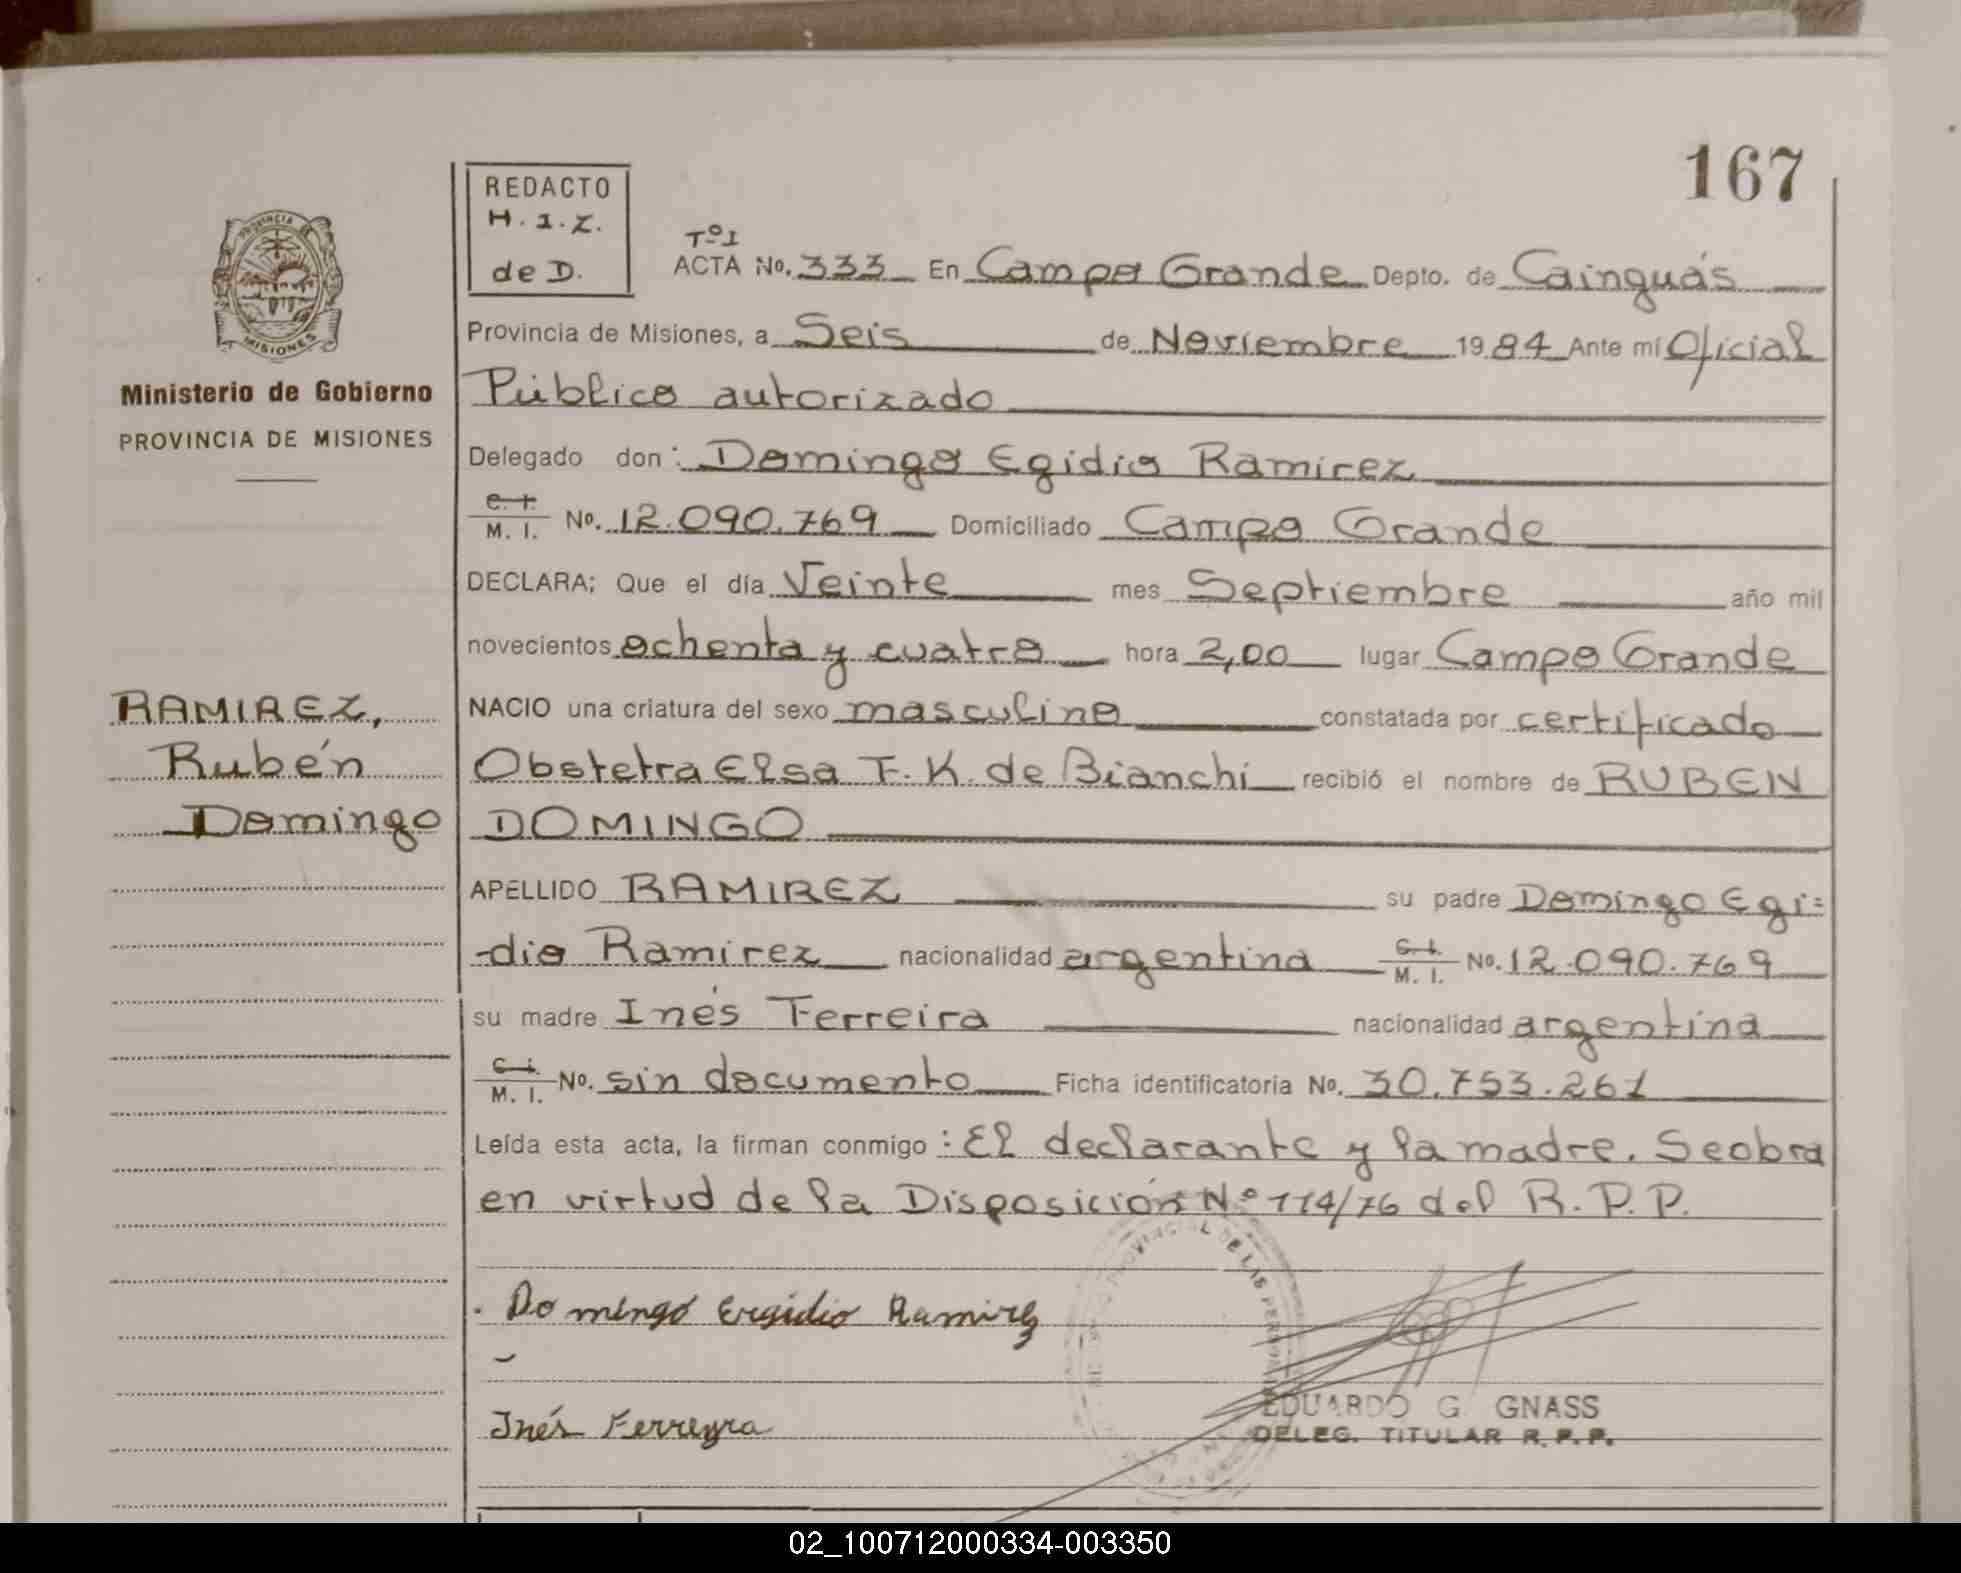 167
REDACTO
H.I.Z.
de D.
PROVINCIA DE
MISIONES
Ministerio de Gobierno
PROVINCIA DE MISIONES
RAMIREZ,
Rubén
Domingo
Tº I
ACTA No. 333 En Campo Grande Depto. de Cainguás
Provincia de Misiones, a Seis de Noviembre 1984 Ante mí Oficial
Público autorizado
Delegado don: Domingo Egidio Ramirez
C. I. / M. I. No. 12.090.769 Domiciliado Campo Grande
DECLARA; Que el día Veinte mes Septiembre año mil
novecientos ochenta y cuatro hora 2,00 lugar Campo Grande
NACIO una criatura del sexo masculino constatada por certificado
Obstetra Elsa T. K. de Bianchi recibió el nombre de RUBEN
DOMINGO
APELLIDO RAMIREZ su padre Domingo Egi=
-dio Ramirez nacionalidad argentina C. I. / M. I. No. 12.090.769
su madre Inés Ferreira nacionalidad argentina
C. I. / M. I. No. sin documento Ficha identificatoria No. 30.753.261
Leída esta acta, la firman conmigo: El declarante y la madre. Seobra
en virtud de la Disposición Nº 114/76 del R.P.P.
PROVINCIAL DE LAS PERSONAS
Domingo Ergidio Ramirez
Inés Ferreyra
EDUARDO G. GNASS
DELEG. TITULAR R.P.P.
02_100712000334-003350